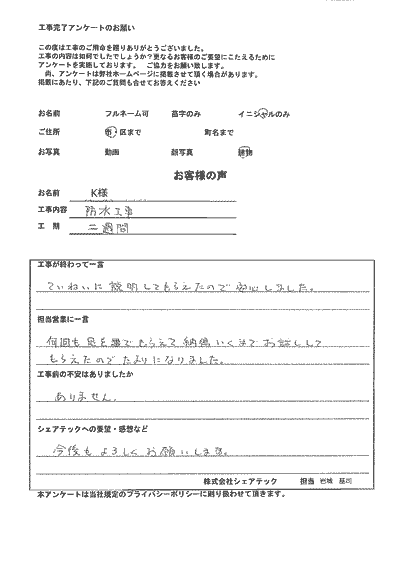 工事完了アンケートのお願い
この度は工事のご用命を賜りありがとうございました。
工事の内容は如何でしたでしょうか？更なるお客様のご要望にこたえるために
アンケートを実施しております。 ご協力をお願い致します。
尚、アンケートは弊社ホームページに掲載させて頂く場合があります。
掲載にあたり、下記のご質問も合せてお答えください
お名前 フルネーム可 苗字のみ イニシャルのみ
ご住所 市・区まで 町名まで
お写真 動画 顔写真 建物
お客様の声
お名前 K様
工事内容 防水工事
工 期 二週間
工事が終わって一言
ていねいに説明してもらえたので安心しました。
担当営業に一言
何回も足を運でもらえて納得いくまでお話しして
もらえたのでたよりになりました。
工事前の不安はありましたか
ありません。
シェアテックへの要望・感想など
今後もよろしくお願いします。
株式会社シェアテック 担当 岩城
本アンケートは当社規定のプライバシーポリシーに則り扱わせて頂きます。